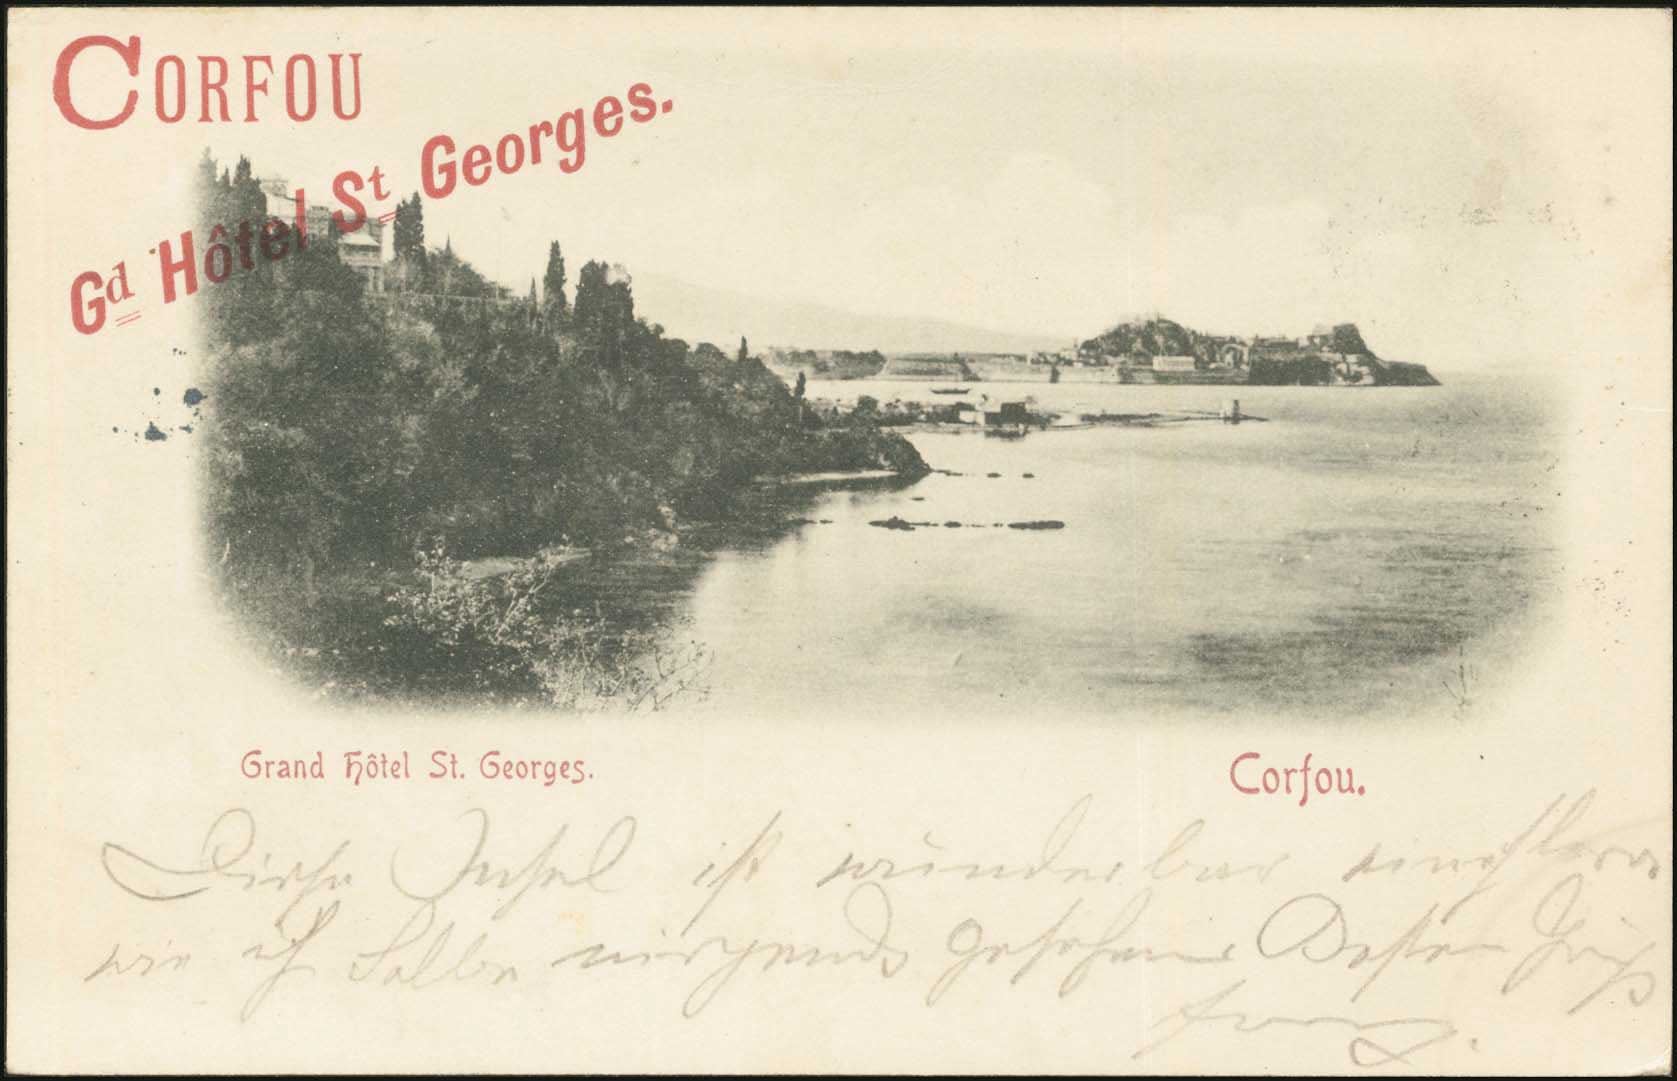 CORFOU
Gd Hôtel St Georges.
Grand Hôtel St. Georges.
Corfou.
Diese Insel ist wunderbar
wie ich selbe nirgends gesehen Besten Gruß
Franz.